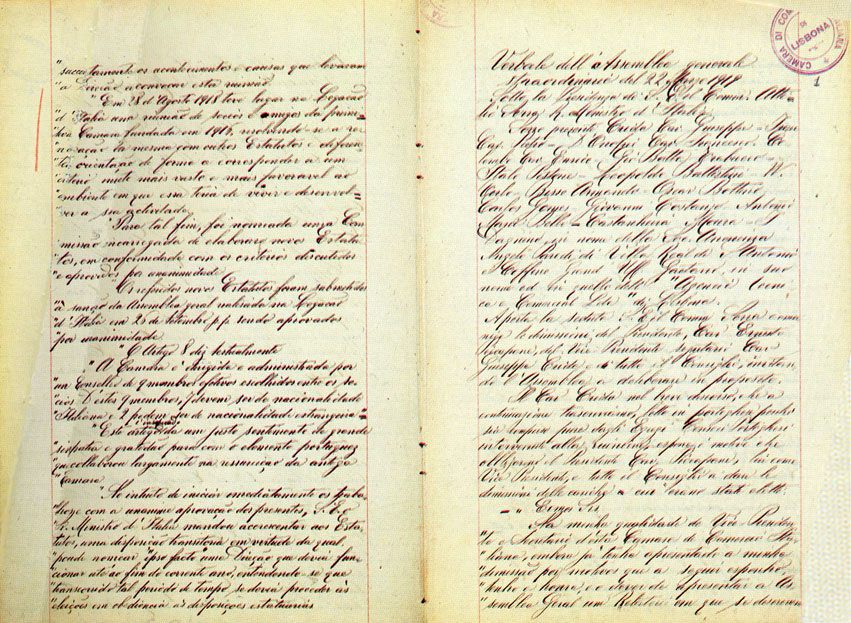 "succintamente os acontecimentos e causas que levaram
"a Direcão a convocar esta reunião.
"Em 28 d'Agosto 1918 teve lugar na Legacão
"d'Italia uma reunião de socios e amigos da prime-
"tiva Camara fundada em 1914, resolvendo-se a re-
"novação da mesma com outros Estatutos e diferen-
"te orientação de forma a corresponder a um
"criterio muito mais vasto e mais favoravel ao
"ambiente em que essa teria de viver e desenvol-
"ver a sua actividade.
"Para tal fim, foi nomeada uma Com-
"missão encarregada de elaborar os novos Estatu-
"tos, em conformidade com os criterios discutidos
"e aprovados por unanimidade.
"Os referidos novos Estatutos foram submetidos
"á sanção da Assemblea geral realizada na Legacão
"d'Italia em 25 de Setembro p.p. sendo aprovados
"por unanimidade.
"O Artigo 8 diz textualmente
"A Camara é dirigida e administrada por
"um Conselho de 9 membros efectivos escolhidos entre os so-
"cios. D'estes 9 membros, 7 devem ser de nacionalidade
"Italiana e 2 podem ser de nacionalidade estrangeira"
"Este artigo é inspirado da um justo sentimento de grande
"simpatia e gratidão para com o elemento portuguez
"que collaborou largamente na ressurreição da antiga
"Camara.
"No intuito de iniciar immediatamente os traba-
"lhos e com a unanime aprovação dos presentes, S. E. o
"Sr. Ministro d'Italia mandou acrescentar aos Esta-
"tutos, uma disposição transitoria em virtude da qual,
"poude nomear "ipso facto" uma Direção que devia fun-
"cionar até ao fim do corrente ano, entendendo-se que
"transcorrido tal periodo de tempo se devia proceder ás
"eleições em obediencia ás disposições estatuarias
CAMERA DI COM
DI
LISBONA
1
Verbale dell'Assemblea generale
straordinaria del 22 1919
Sotto la Presidenza di S. E. il Comm. Atti-
lio R. Ministro d'Italia
Sono presenti Creida Cav Giuseppe -
Cav. Pietro - Cav. Francesco. Co-
lombo Cav Enrico Gio Batta
Italo - Leopoldo Battistini - W.
Corte, Basso Armando - Oscar Bottaro
Carlos Gomes, Giovanni Costanzo, Antonio
Mario Bello - Castanheira Moura - 
Dagnino in nome della Soc. Anonima
Angelo Parodi di Villa Real de S. Antonio
Grand Uff Gaetano, in suo
nome ed in quello dell' "Agencia Tecni-
ca e Comercial Lda" di Lisbona.
Aperta la seduta S. E. il Comm comu-
nica le dimissioni del Presidente, Cav Ernesto
del Vice Presidente segretario Cav
Giuseppe Creida e di tutto il Consiglio, invitan-
do l'Assemblea a deliberare in proposito.
Il Cav Creida nel breve discorso, che a
continuazione trascriviamo, fatto in portoghese
intervenuti alla riunione, espone i motivi che
obbligarono il Presidente Cav lui come
Vice Presidente, e tutto il Consiglio a dare le
dimissioni delle cariche a cui erano stati eletti.
Na minha qualidade de Vice Presiden-
te e Secretario d'esta Camara de Comercio Ita-
liana, embora já tenha apresentado a minha
demissão por motivos que a seguir exponho,
tenho a honra, e o dever de apresentar á As-
semblea Geral um Relatorio em que se descrevem